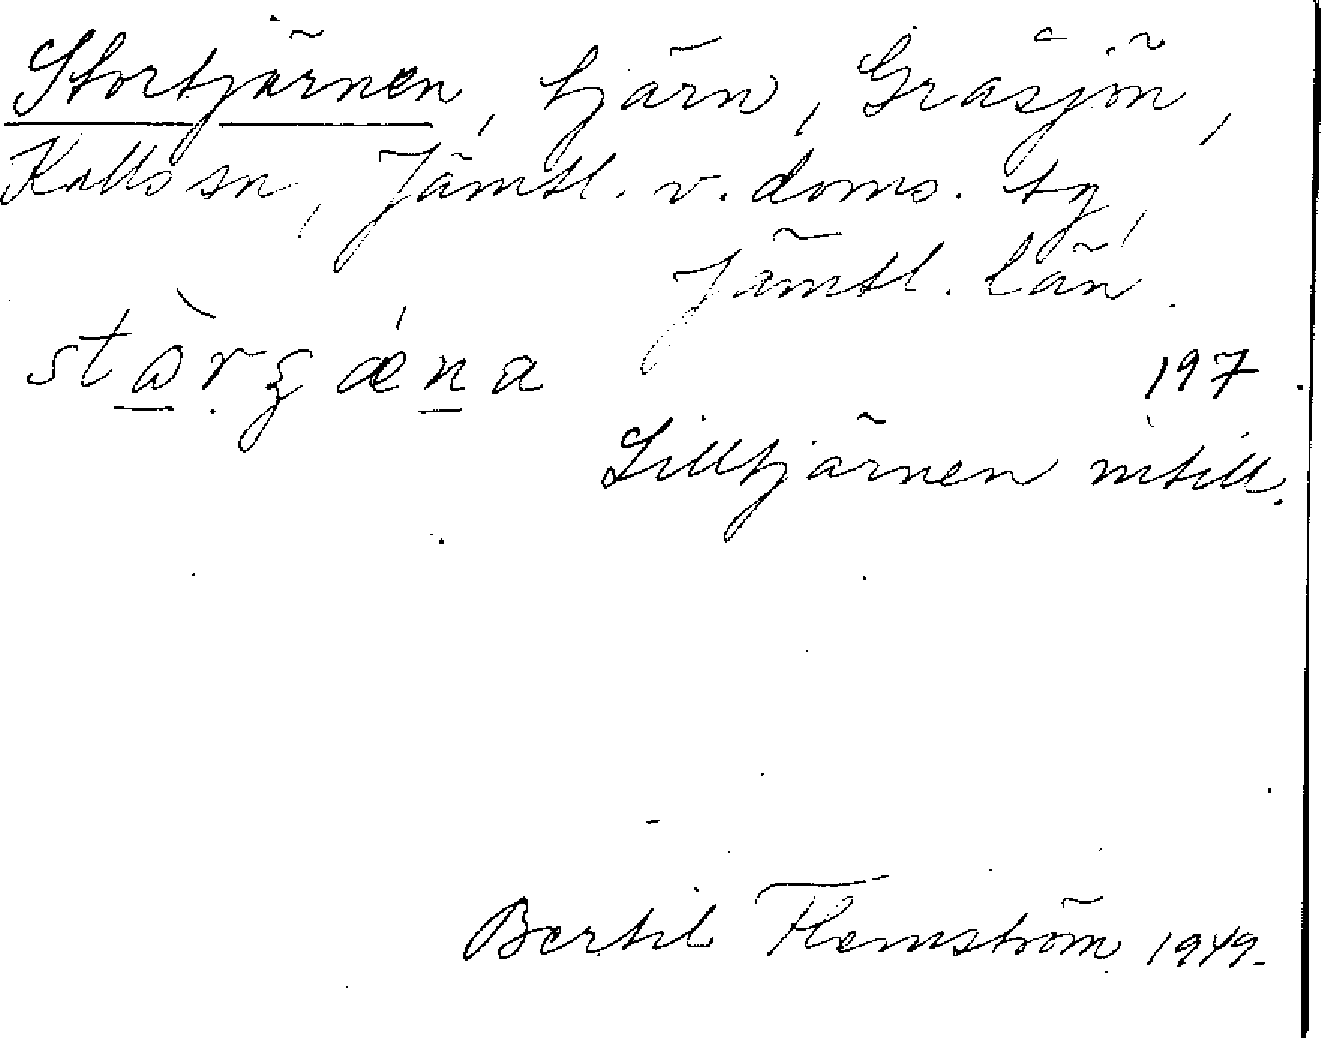 Stortjärnen, tjärn, Gråsjön,
Kalls sn, Jämtl. v. doms. tg,
Jämtl. län.
197
Lilltjärnen intill.
Bertil Flemström 1949.